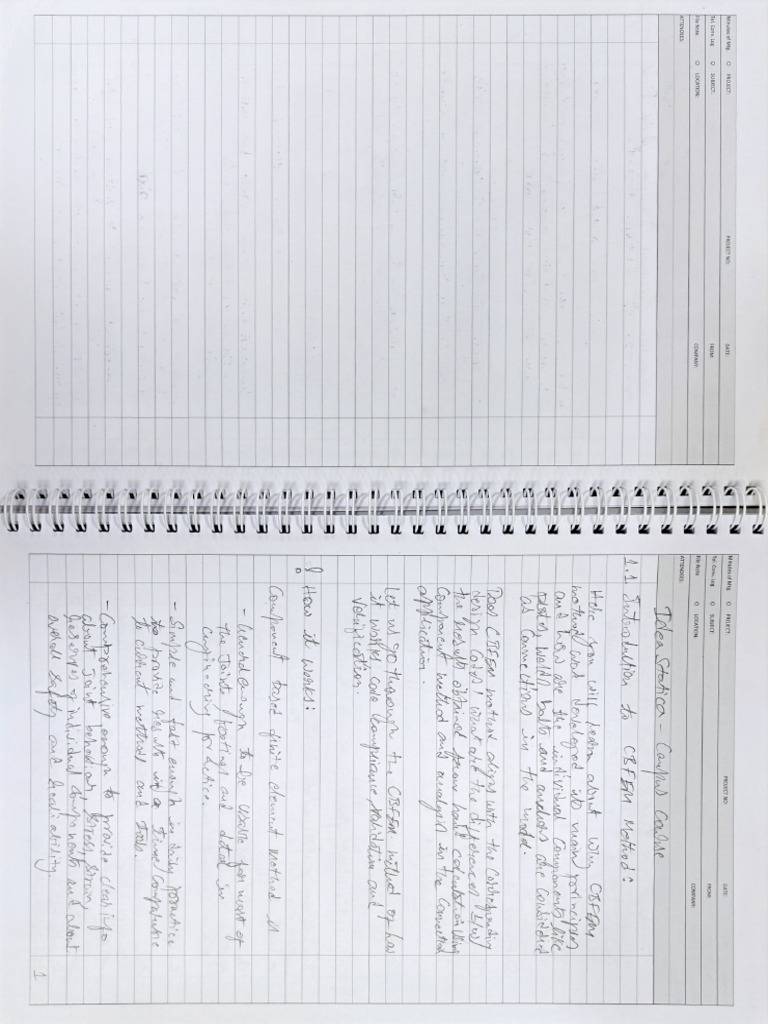 Minutes of Mtg PROJECT: PROJECT NO: DATE:
Tel. Conv. Log SUBJECT: FROM:
File Note LOCATION: COMPANY:
ATTENDEES:
Minutes of Mtg PROJECT: PROJECT NO: DATE:
Tel. Conv. Log SUBJECT: FROM:
File Note LOCATION: COMPANY:
ATTENDEES:
Idea Statica - Campus Course
1.1 Introduction to CBFEM Method:
Here you will learn about why CBFEM
method was developed its main principles
and how are the individual components like
plates, welds, bolts and anchors are considered
as connections in the model.
Does CBFEM method aligns with the corresponding
design codes! What are the difference b/w
the results obtained from hand calculation using
component method and analysis in the connection
application.
Let us go through the CBFEM method of how
it works, code compliance, validation and
verification.
How it works:
Component based finite element method is
- General enough to be usable for most of
the joints, footings and detail in
engineering practice.
- Simple and fast enough in daily practice
to provide results in a time comparable
to current methods and tools.
- Comprehensive enough to provide clear info
about joint behaviour, stress, strain,
reserves of individual components and about
overall safety and reliability.
1